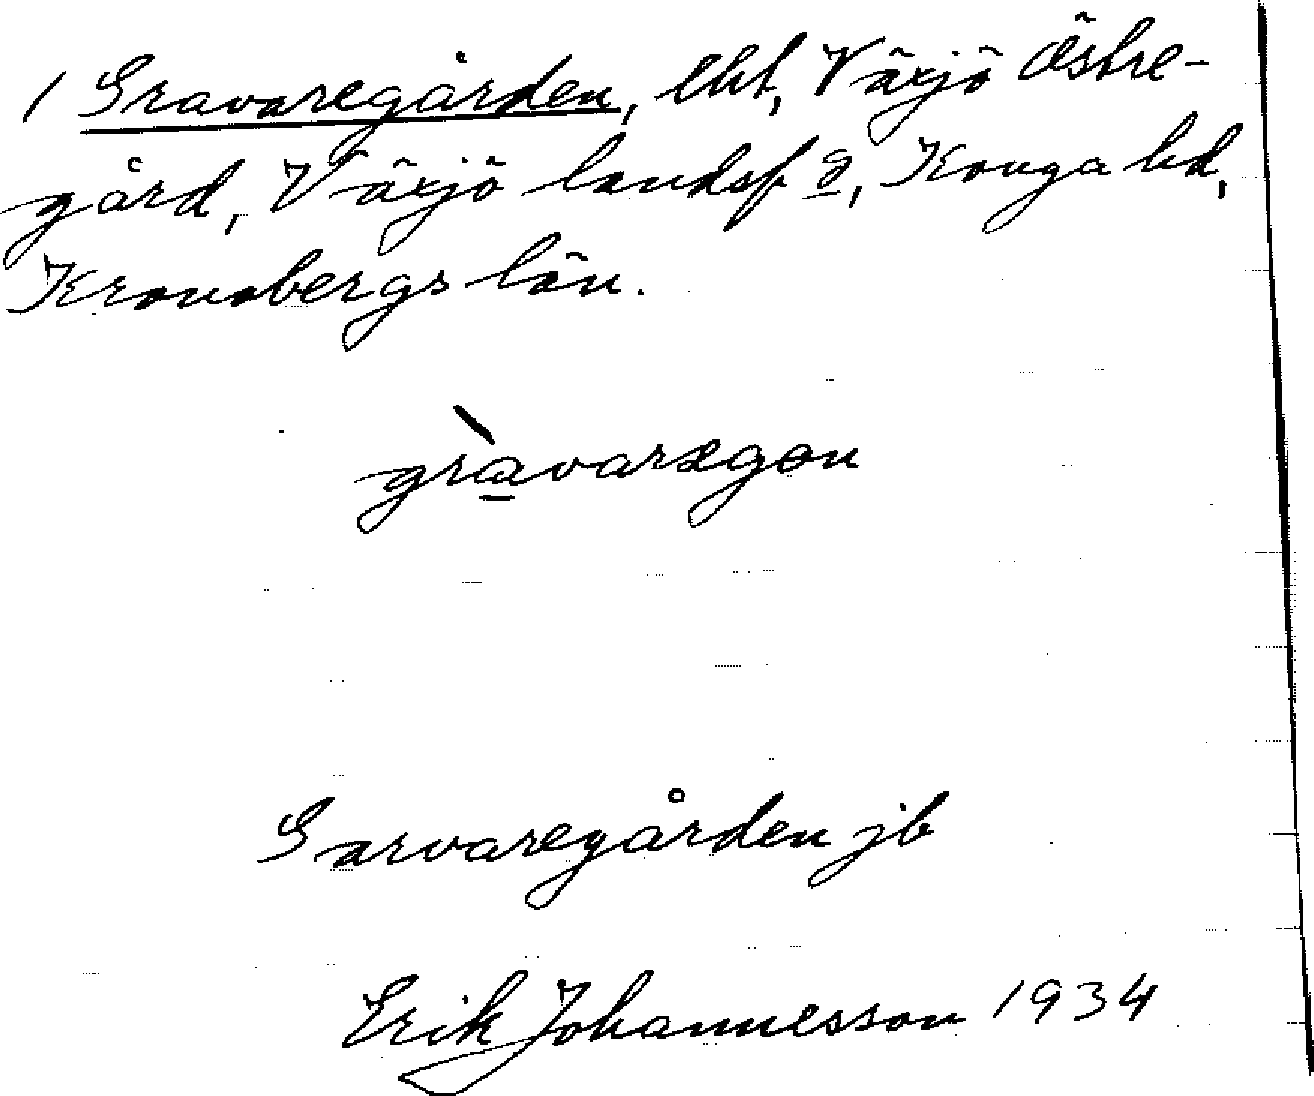 1 Gravaregården, lht, Växjö Östre-
gård, Växjö landsf 2, Konga hd,
Kronobergs län.
gràvaregon
Garvaregården jb
Erik Johannesson 1934